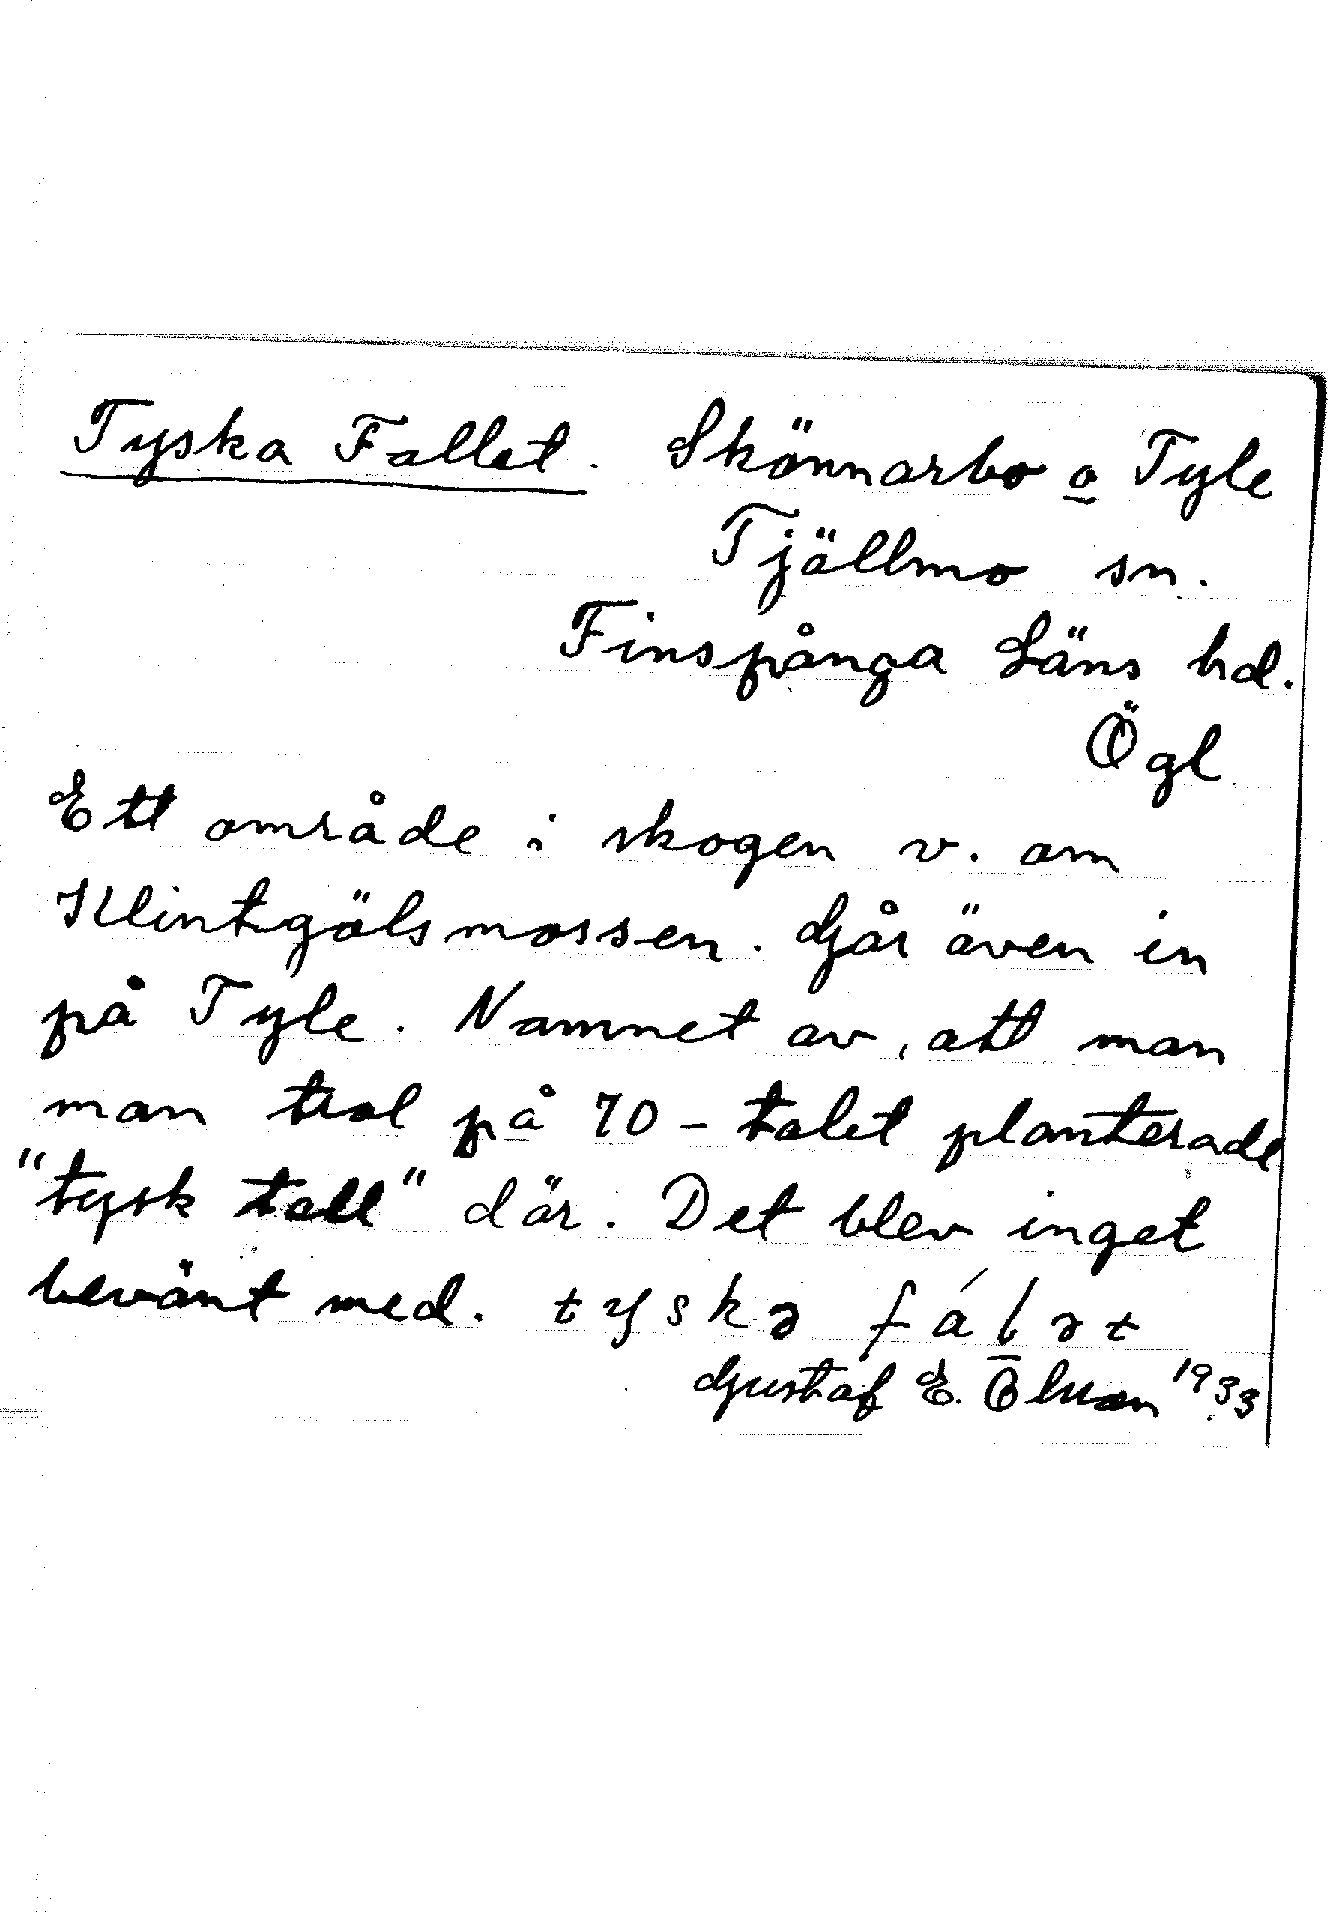 Tyska Fallet. Skönnarbo o Tyle
Tjällmo sn.
Finspånga Läns hd.
Ögl
Ett område i skogen v. om
Klintgölsmossen. Går även in
på Tyle. Namnet av, att man
man trol på 70-talet planterade
"tysk tall" där. Det blev inget
bevänt med. tyskə fálət
Gustaf E. 1933